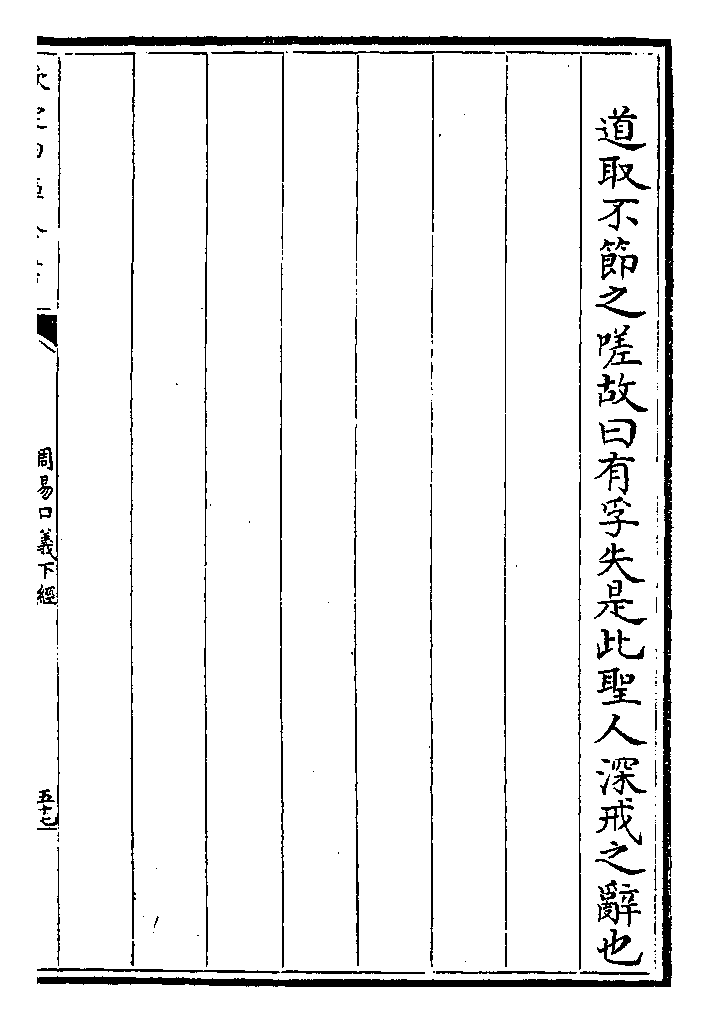 道取不節之嗟故曰有孚失是此聖人深戒之辭也
欽定四庫全書
周易口義下經
五十七